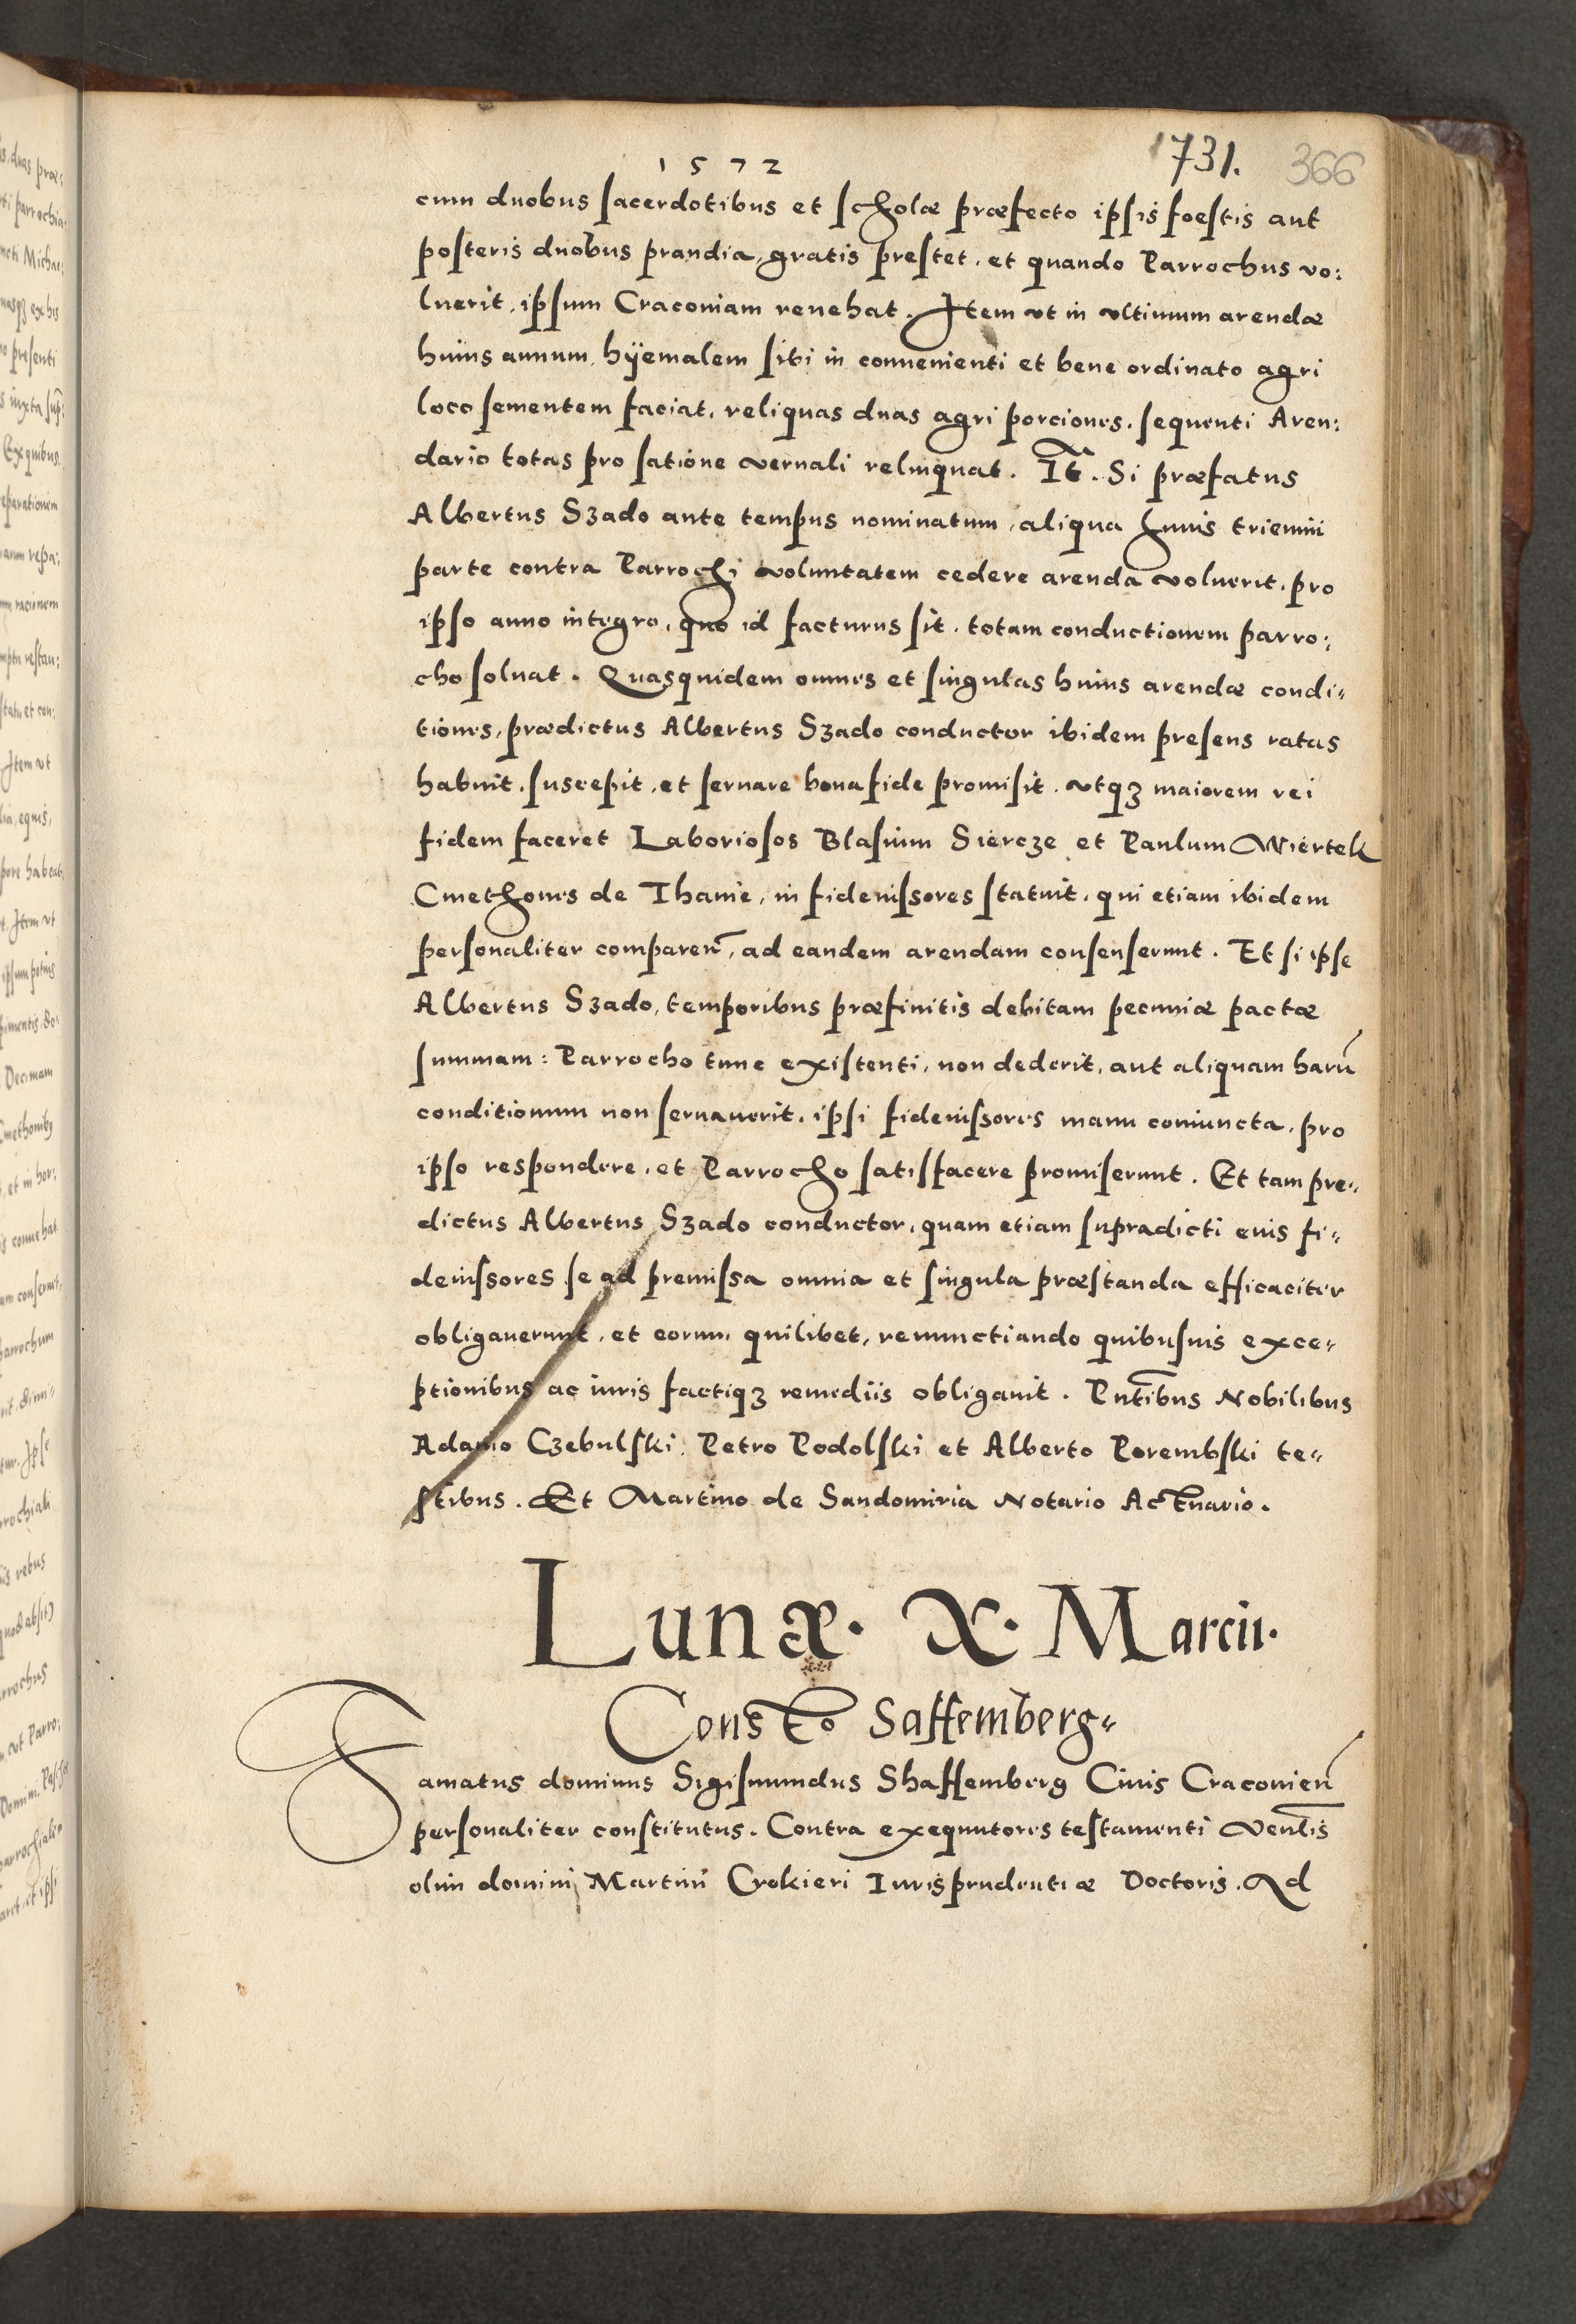 1572
1731. 366
cum duobus sacerdotibus et scholæ præfecto ipsis foestis aut
posteris duobus prandia, gratis prestet, et quando Parrochus vo:
luerit, ipsum Cracouiam reuehat. Item vt in vltimum arendæ
huius annum, hÿemalem sibi in conuenienti et bene ordinato agri
loco sementem faciat, reliquas duas agri porciones, sequenti Aren:
dario totas pro satione vernali relinquat. It̃. Si præfatus
Albertus Szado ante tempus nominatum, aliqua huius triennii
parte contra Parrochi voluntatem cedere arenda voluerit, pro
ipso anno integro, quo id facturus sit, totam conductionem parro:
cho soluat. Quasquidem omnes et singulas huius arendæ condi⸗
tiones, prædictus Albertus Szado conductor ibidem presens ratas
habuit, suscepit, et seruare bona fide promisit, vtqꝫ maiorem rei
fidem faceret Laboriosos Blasium Siercze et Paulum Wiertek
Cmethones de Thanie, in fideiussores statuit, qui etiam ibidem
personaliter comparen̄, ad eandem arendam consenserunt. Et si ipse
Albertus Szado, temporibus præfinitis debitam pecuniæ pactæ
summam: Parrocho tunc existenti, non dederit, aut aliquam harū
conditionum non seruauerit, ipsi fideiussores manu coniuncta, pro
ipso respondere, et Parrocho satisfacere promiserunt. Et tam pre⸗
dictus Albertus Szado conductor, quam etiam supradicti eius fi⸗
deiussores se ad premissa omnia et singula præstanda efficaciter
obligauerunt, et eorum quilibet, renunctiando quibusuis exce⸗
ptionibus ac iuris factiqꝫ remediis obligauit. Pn̄tibus Nobilibus
Adamo Czebulski Petro Podolski et Alberto Porembski te⸗
stibus. Et Martino de Sandomiria Notario Actuario.
Lunæ. X. Marcii.
Const̃o Saffemberg⸗
Famatus dominus Sigismundus Shaffemberg Ciuis Cracouien̄
personaliter constitutus. Contra exequutores testamenti Ven̄lis
olim domini Martini Crokieri Iurisprudentiæ Doctoris. Ad